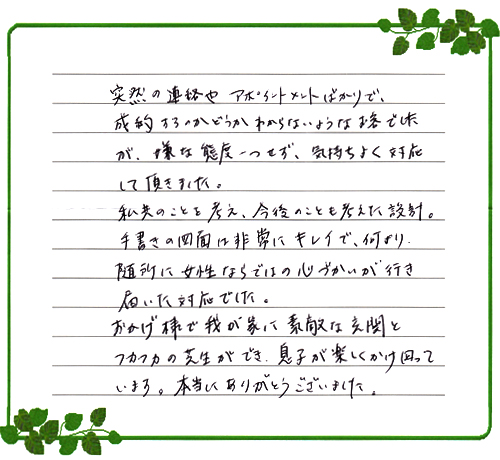 突然の連絡や アポイントメントばかりで、
成約するのかどうかわからないようなお客でした
が、嫌な態度一つせず、気持ちよく対応
して頂きました。
私共のことを考え、今後のことも考えた設計。
手書きの図面は非常にキレイで、何より、
随所に女性ならではの心づかいが行き
届いた対応でした。
おかげ様で我が家に素敵な玄関と
フカフカの芝生ができ、息子が楽しくかけ回って
います。本当にありがとうございました。